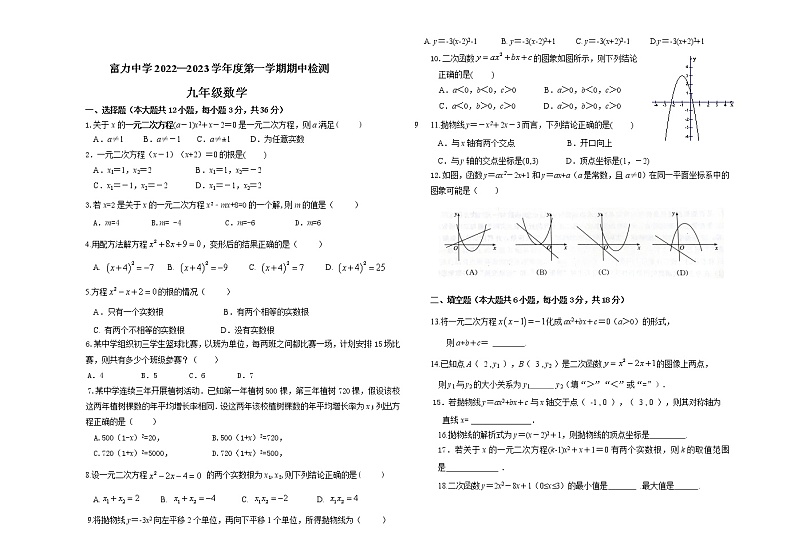 富力中学2022—2023学年度第一学期期中检测
九年级数学
一、选择题（本大题共12小题，每小题3分，共36分）
1.关于x的一元二次方程(a－1)x²＋x－2=0是一元二次方程，则a满足(　　)
A．a≠1　　B．a≠－1　　C．a≠±1　　D．为任意实数
2．一元二次方程（x－1）（x+2）=0的根是(　　)
A．x₁=1，x₂=2　　B．x₁=1，x₂=－2
C．x₁=－1，x₂=－2　　D．x₁=－1，x₂=2
3.若x=2是关于x的一元二次方程x²﹣mx+8=0的一个解,则m的值是（　　）
A．m=4　　B.m= -4　　C．m=-6　　D．m=6
4.用配方法解方程x²+8x+9=0，变形后的结果正确的是（　　）
A. (x+4)²=-7　B. (x+4)²=-9　C. (x+4)²=7　D. (x+4)²=25
5.方程x²-x+2=0的根的情况（　　）
A．只有一个实数根　　B．有两个相等的实数根
C. 有两个不相等的实数根　　D．没有实数根
6.某中学组织初三学生篮球比赛，以班为单位，每两班之间都比赛一场，计划安排15场比
赛，则共有多少个班级参赛？（　　）
A．4　　B．5　　C．6　　D．7
7.某中学连续三年开展植树活动。已知第一年植树500棵，第三年植树720棵，假设该校
这两年植树棵数的年平均增长率相同.设这两年该校植树棵数的年平均增长率为x,列出方
程正确的是（　　）
A.500（1-x）²=20，　　B.500（1+x）²=720，
C.720（1+x）²=5000，　　D.720（1+x）²=500，
8.设一元二次方程x²-2x-4=0 的两个实数根为x₁,x₂,则下列结论正确的是(　　)
A. x₁+x₂=2　B. x₁+x₂=-4　C. x₁x₂=-2　D. x₁x₂=4
9.将抛物线y=-3x²向左平移2个单位，再向下平移1个单位，所得抛物线为（　　）
A. y=-3(x-2)²-1　　B. y=-3(x-2)²+1　　C. y=-3(x+2)²-1　　D.y=-3(x+2)²+1
10.二次函数y=ax²+bx+c的图象如图所示，则下列结论
正确的是(　　)
A．a<0，b<0，c>0　　B．a>0，b<0，c>0
C．a<0，b>0，c>0　　D．a>0，b>0，c>0
9
11.抛物线y=－x²＋2x－3而言，下列结论正确的是(　　)
A．与x轴有两个交点　　B．开口向上
C．与y轴的交点坐标是(0,3)　　D．顶点坐标是(1，－2)
12.如图，函数y=ax²－2x+1和y=ax+a（a是常数，且a≠0）在同一平面坐标系中的
图象可能是（　　）
(A)　(B)　(C)　(D)
二、填空题（本大题共6小题，每小题3分，共18分）
13.将一元二次方程x(x-1)=-1化成ax²+bx＋c=0（a>0）的形式，
则a+b+c= ________.
14.已知点A（ 2 , y₁ ），B（ 3 , y₂ ）是二次函数y=x²-2x+1的图像上两点，
则y₁与y₂的大小关系为y₁______y₂（填“>”“<”或“=”）.
15．若抛物线y=ax²+bx＋c与x轴交于点（ -1 , 0 ），（ 3 , 0 ），则其对称轴为
直线x=______________．
16.抛物线的解析式为y=(x－2)²＋1，则抛物线的顶点坐标是________.
17．若关于x的一元二次方程(k-1)x²＋x＋1=0有两个实数根，则k的取值范围
是____________．
18.二次函数y=2x²－8x＋1（0≤x≤3）的最小值是_______ 最大值是______.